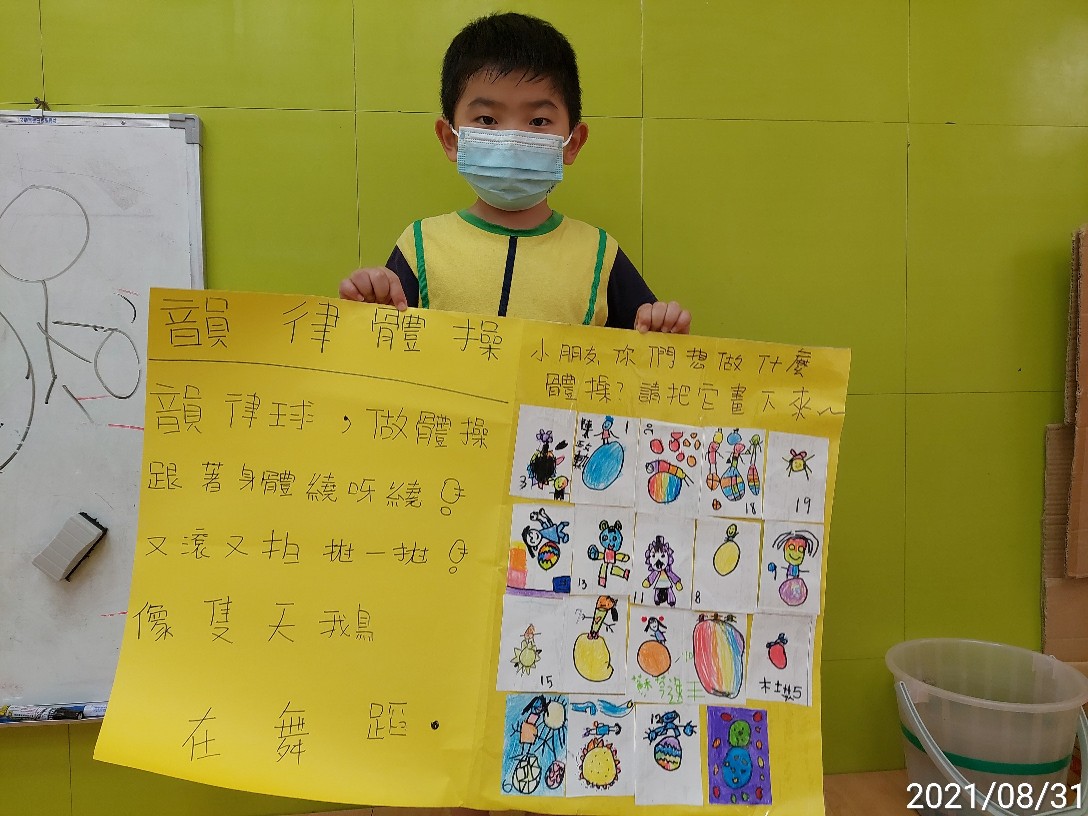 韻律體操
韻律球，做體操
跟著身體繞呀繞！
又滾又拍拋一拋！
像隻天鵝
在舞蹈。
小朋友你們想做什麼
體操？請把它畫下來～
3
1
18
19
13
11
8
9
15
10
5
12
2021/08/31